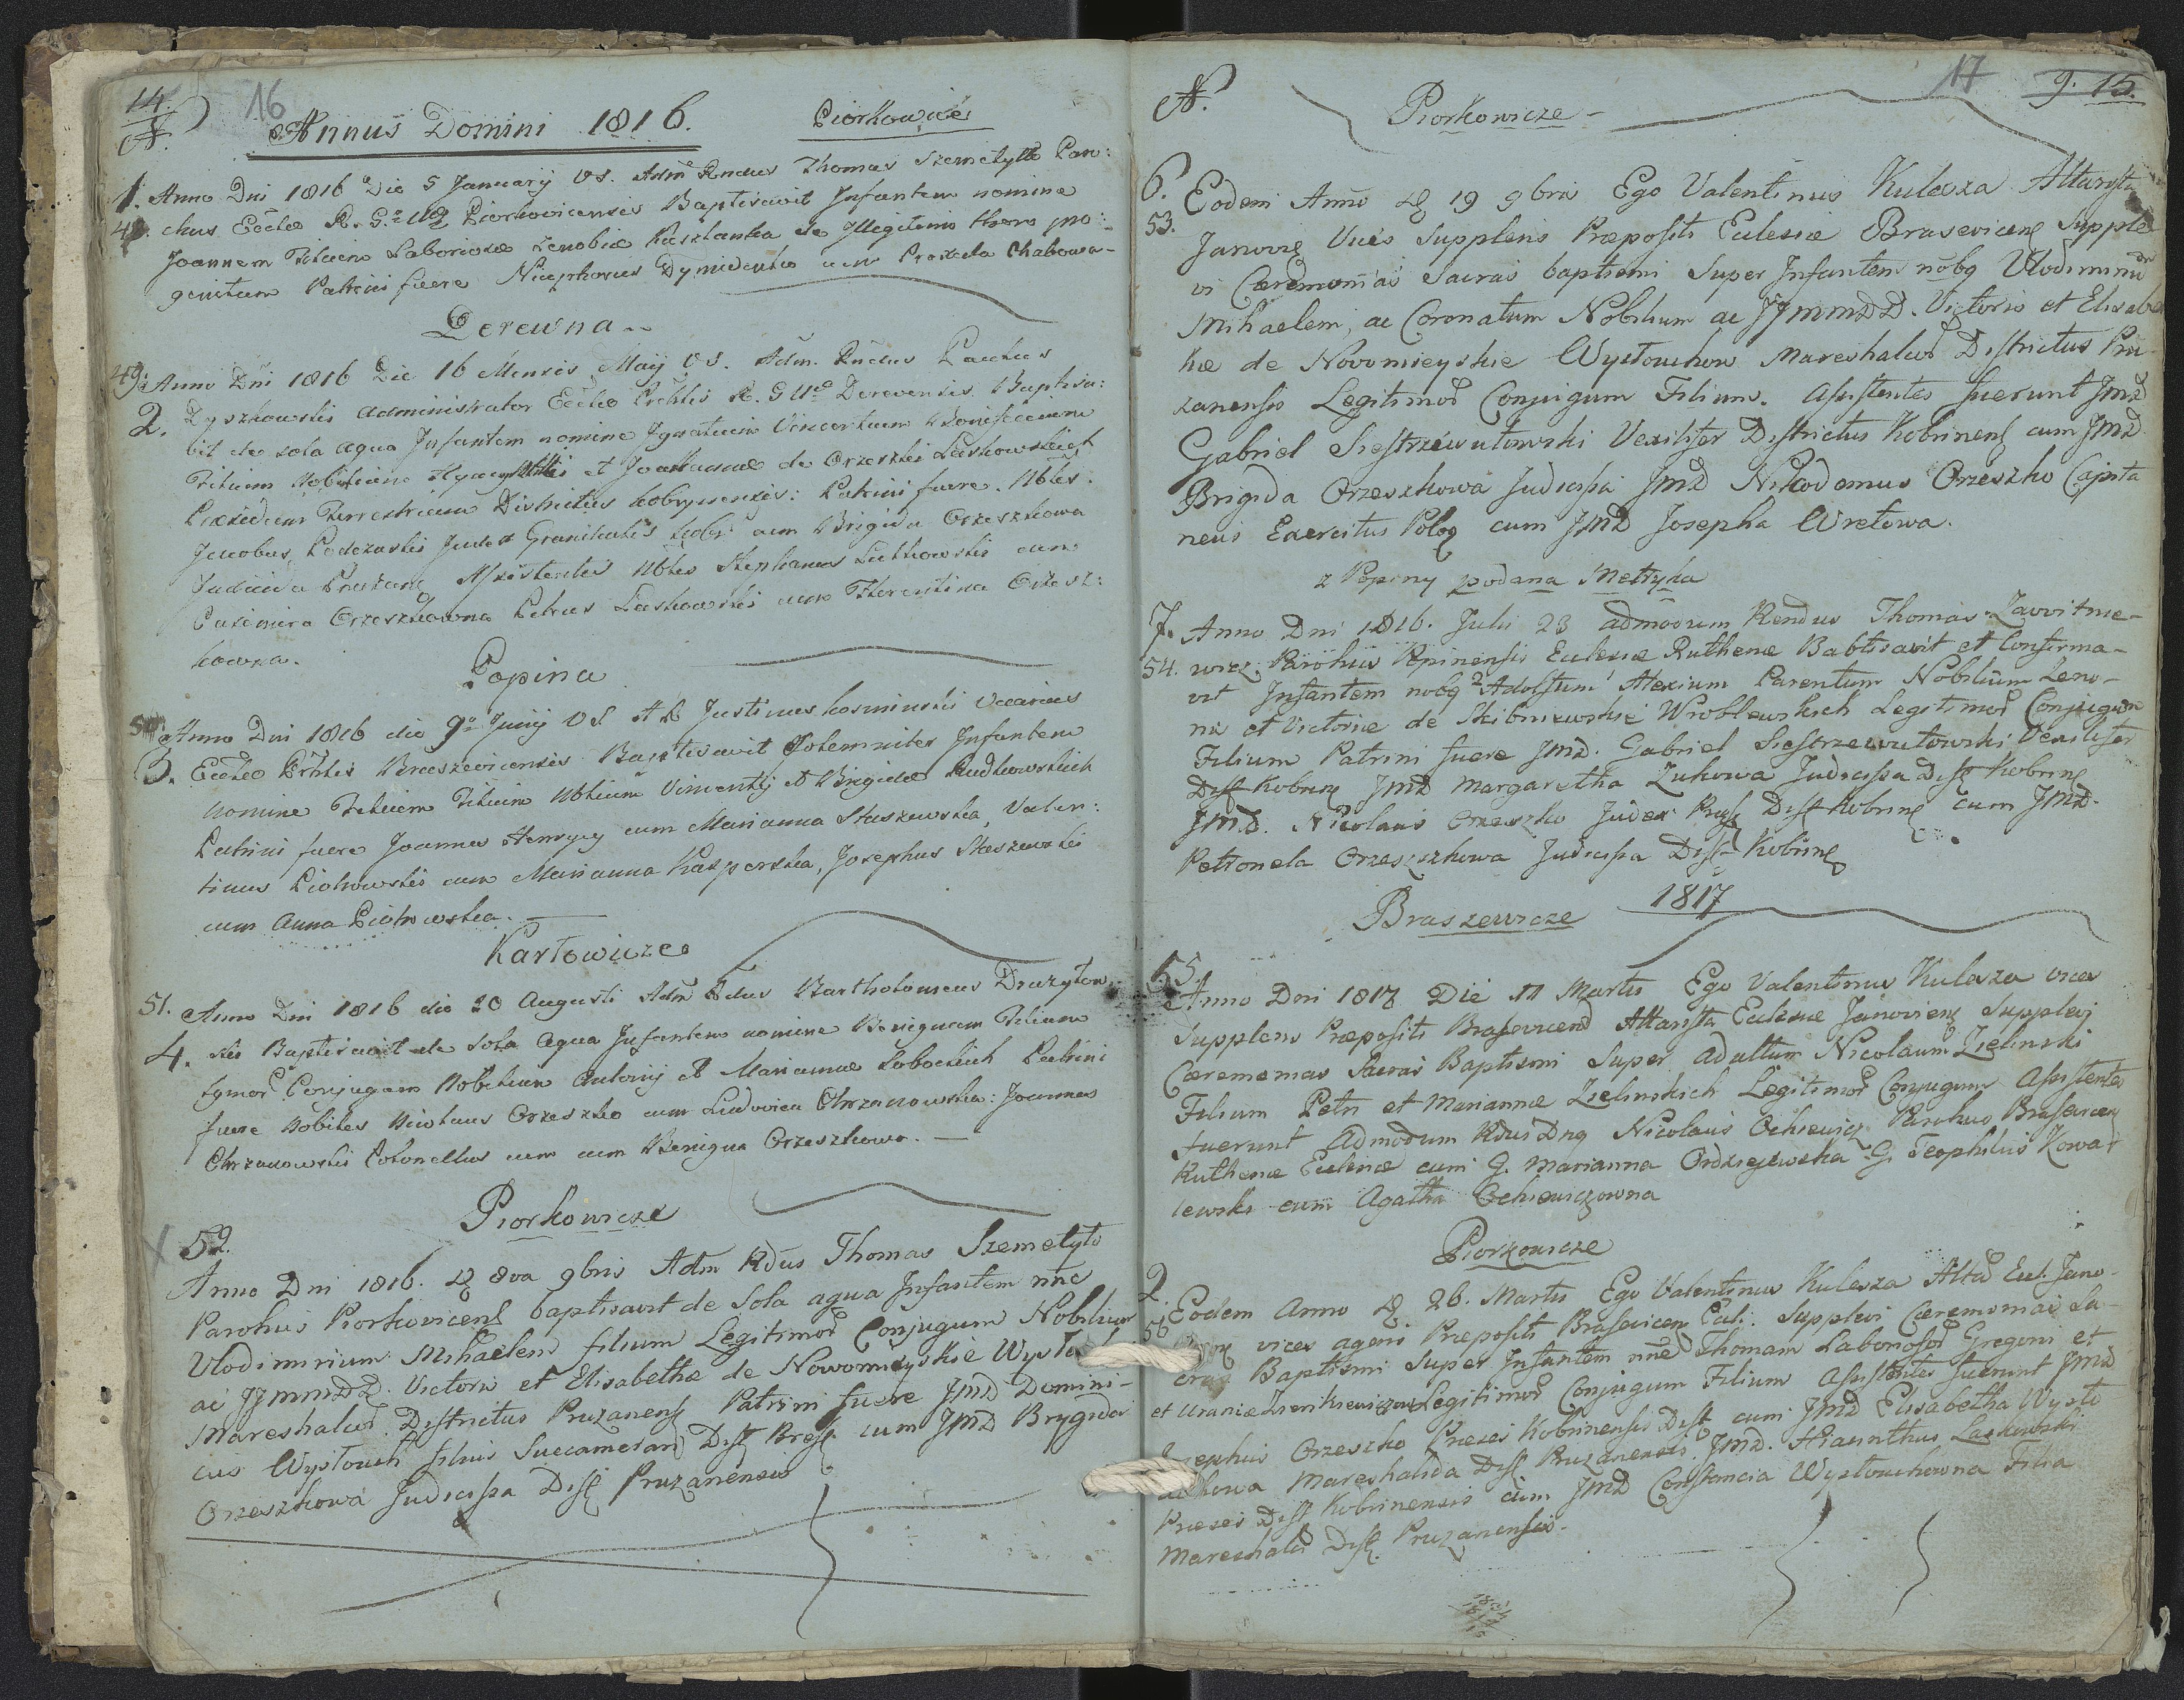 14. 16
N. Annus Domini 1816. Piorkowicze
1. Anno Dni 1816 Die 5 January V S. Adm Rndus Thomas Szemetyłło Paro:
48. chus Eccłæ R. G. Piorkovicensis Baptisavit Infantem nomine
Joannem Filium Laboriosæ Zenobiæ de Illegitimo thoro pro:
genitum Patrini fuere Nicephorus cum
Derewna
49. Anno Dni 1816 Die 16 Mensis Maij V S. Adm. Rndus
2. Zyszkowski Administrator Ecclæ R. G Derevensis Baptisa:
vit de sola aqua Infantem nomine Ignatium Vincentium Bonifacium
Filium Nobilium et Joannæ de Orzeszki Laskowskich
Præsidum Terrestrium Districtus Kobrynensis: Patrini fuere. Nbles.
Jacobus Judex Granitialis Kobr: cum Brigida Orzeszkowa
Judicida Assistentes Nbles Stephanus cum
Casimira Orzeszkowna Petrus Laskowski cum Florentina Orzesz:
kowna.
Popina
50. Anno Dni 1816 die 9a Junij V S. A R Justinus Kosminski Vicarius
3. Ecclæ Braszevicensis Baptisavit Solemniter Infantem
nomine Filium Nblium Vincentij et Brigidæ Rudkowskich
Patrini fuere Joannes cum Marianna Staszewska, Valen:
tinus Piotrowski cum Marianna Kasperska, Josephus Staszewski
cum Anna Piotrowska.
Karłowicze
51. Anno Dni 1816 die 20 Augusti Adm Rdus Bartholomeus Druzyłow
4. ski Baptisavit de Sola Aqua Infantem nomine Benignam Filiam
Conjugum Nobilium Antonij et Mariannæ Sobockich Patrini
fuere Nobiles Nicolaus Orzeszko cum Ludovica Chrzanowska: Joannes
Chrzanowski Colonellus cum cum Benigna Orzeszkowa.
Piorkowicze
52.
Anno Dni 1816. D 8va 9bris Adm Rdus Thomas Szemetyło
Parohus Piorkovicens baptisavit de Sola aqua Infantem nne
Vlodimirium Mihaelem filium Legitimor Conjugum Nobilium
ac JJmmDD. Victoris et Elisabethæ de Nowomieyskie
Mareshalcor Districtus Pruzanens Patrini fuere JmD Domini-
cus Wysłouch filius Succamerarii Dist Brest. cum JMD Brygida
Orzeszkowa Judicissa Dist Pruzanensis
N. Piorkowicze 17 9. 15.
6. Eodem Anno D 19 9bris Ego Valentinus Kulesza Altarysta
53. Janovie Vices Supplens Præpositi Eclesiæ Brasevicens Supple
vi Cæremonias Sacras baptismi Super Infantem nobq Vlodimirum
Mihaelem, ac Coronatum Nobilium ac JJmmDD. Victoris et Elisabe
hæ de Novomieyskie Wysłouchow Mareshalcor Districtus Pru-
zanensis Legitimor Conjugum Filium. Assistentes fuerunt JmD
Gabriel Siestrzewutowski Vexilifer Districtus Kobrinens cum JmD
Brigida Orzeszkowa Judicissa JmD Nikodemus Orzeszko Capita
neus Exercitus Polon cum JMD Josepha Wretowa.
z Popiny podana Metryka
7. Anno Dni 1816. Julii 23 admodum Rendus Thomas Zawitnie-
54. wicz Parohus Popinensis Eclesiæ Ruthenæ Babtisavit et Confirma-
vit Infantem nobq 2 Adolfum 1 Alexium Parentum Nobilium Leno-
nis et Victoriæ de Skibniewskie Wroblewskich Legitimor Conjugum
Filium Patrini fuere JmD. Gabriel Siestrzewutowski Vexilifer
Dist Kobrin JmD Margaretha Zukowa Judicissa Dist Kobrine
JmD. Nicolaus Orzeszko Judex Dist Kobrine cum JMD.
Petronela Orzeszkowa Judicissa Dist Kobrine
1817
Braszewicze
55.
Anno Dni 1817 Die 11 Martii Ego Valentinus Kulesza vices
Supplens Præpositi Brasevicens Altarista Eclesiæ Janovien Supplevj
Cæremonias Sacras Baptismi Super Adultum Nicolaum Zielinski
Filium Petri et Mariannæ Zielinskich Legitimor Conjugum Assistentes
fuerunt Admodum Rdus Dnq Nicolaus Ochiewicz Parohus Brasevicen
Ruthenæ Eclesiæ cum G. Marianna Ordziejewska G. Teophilus Kowa
lewski cum Agatha Ochiewiczowna
Piorkowicze
2. Eodem Anno D 26. Martii Ego Valentinus Kulesza Altar Ecl. Jano-
56. vices agens Præpositi Brasevicen Ecli. Supplevi Cæremonias Sa-
cras Baptismi Super Infantem nne Thomam Laboriosor Gregorii et
et Uraniæ Legitimor Conjugum Filium Assistentes fuerunt JmD
Josephus Orzeszko Præses Kobrinensis Dist cum JmD Elisabetha Wysło
uchowa Mareshalida Dist Pruzanensis JmD. Hiacinthus Laskowski
Præses Dist Kobrinensis cum JmD Constancia Wysłouchowna Filia
Mareshalci Dist Pruzanensis.